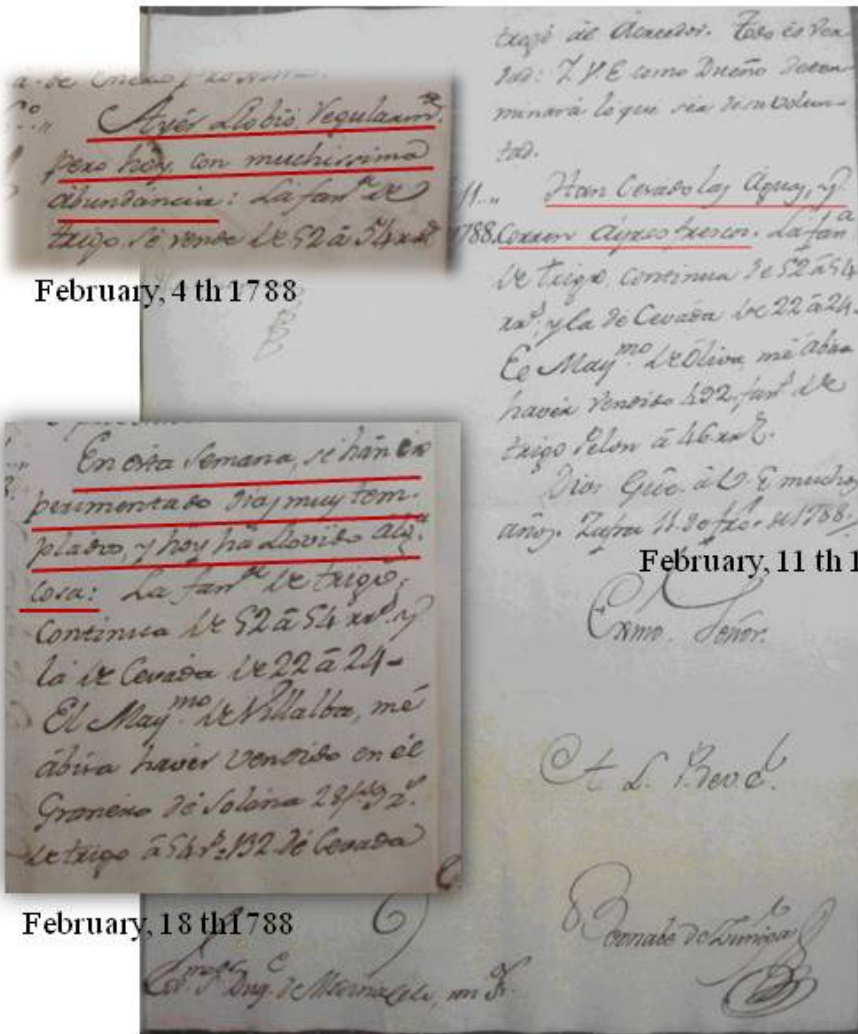 Ayér Llobió, Regularm.te
pero hoy, con muchissima
abundáncia: La fan.ga de
trigo se vende de 52 á 54 rr.s
February, 4 th 1788
En esta Semana, se hán ex
perimentado dias muy tem-
plados, y hoy há Llovido alg.a
cosa: La fan.ga de trigo,
Continua de 52 á 54 rr.s y
la de Cevada de 22 á 24-
El May.mo de Villalba, mé
ábisa havér vendido en él
Granero de Solána
de trigo á 54 r.s 132 de Cevada
February, 18 th1788
trigo ál Acreedor. Todo és Ver
dad: Y V.E como Dueño Deter
minará lo que séa de su volun-
tad.
11..
Han Cesado las Aguas, y
1788. Corren Ayres frescos. La fan.a
de trigo, continúa de 52 á 54
rr.s, y la de Cevada de 22 á 24-
El May.mo de Oliva, mé ábisa
havér vendido 492 fan.s de
trigo Pelon á 46 rr.s
Dios Güe. á V. E muchos
años. Zafra 11 de feb.o de 1788.
February, 11 th 1
Exmo. Señor.
A L. P. de V.e
Bernabe de Zuñiga
Duq.e de Medinaceli, mi S.r